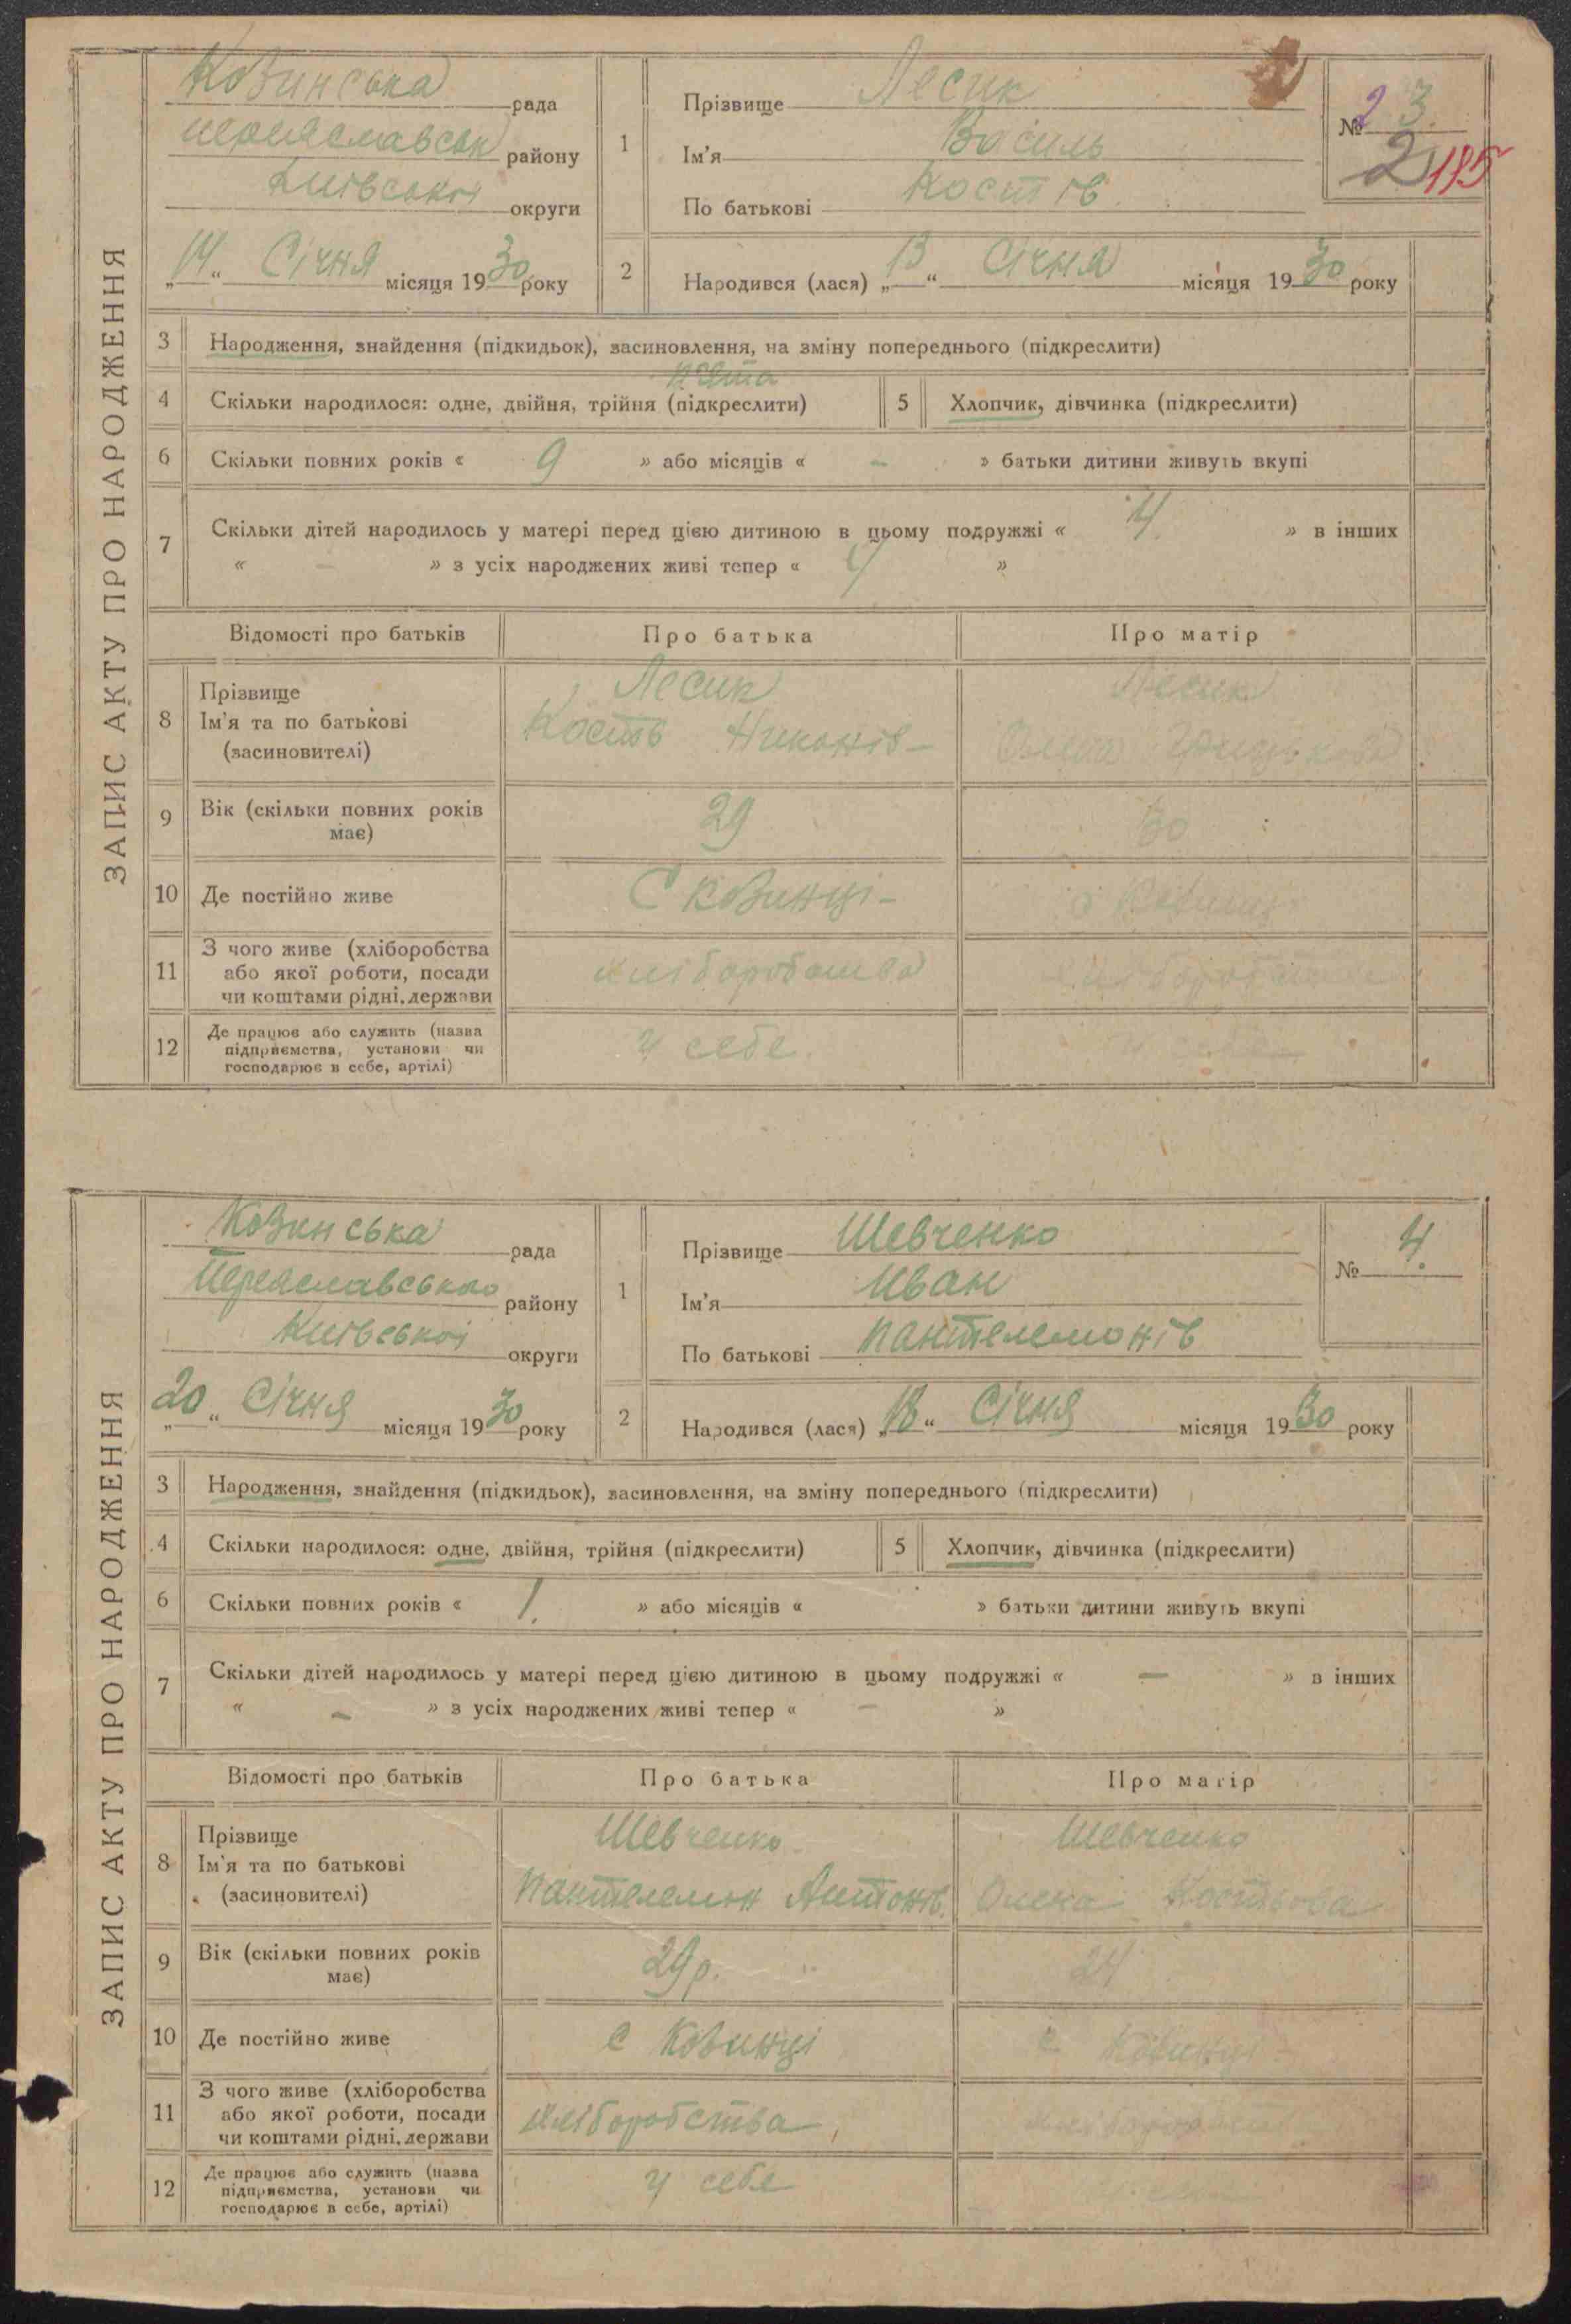 ЗАПИС АКТУ ПРО НАРОДЖЕННЯ
Ковинська рада
переяславськ району
Київської округи
„14“ Січня місяця 1930 року
1 Прізвище Лесик
Ім'я Василь
По батькові Костів
№ 2 3.
2 115
2 Народився (лася) „13“ Січня місяця 1930 року
3 Народження, знайдення (підкидьок), засиновлення, на зміну попереднього (підкреслити)
4 Скільки народилося: одне, двійня, трійня (підкреслити)
5 Хлопчик, дівчинка (підкреслити)
6 Скільки повних років « 9 » або місяців « - » батьки дитини живуть вкупі
7 Скільки дітей народилось у матері перед цією дитиною в цьому подружжі « 4 » в інших
« - » з усіх народжених живі тепер « 4 »
Відомості про батьків Про батька Про матір
8 Прізвище Лесик Лесик
Ім'я та по батькові Костів Никонів-
(засиновителі)
9 Вік (скільки повних років має) 29 30
10 Де постійно живе С Ковинці- с Ковинці
11 З чого живе (хліборобства
або якої роботи, посади хліборобства
чи коштами рідні, держави
12 Де працює або служить (назва
підприємства, установи чи у себе
господарює в себе, артілі)
ЗАПИС АКТУ ПРО НАРОДЖЕННЯ
Ковинська рада
Переяславського району
Київської округи
„20“ Січня місяця 1930 року
1 Прізвище Шевченко
Ім'я Иван
По батькові Пантелемонів
№ 4.
2 Народився (лася) „18“ Січня місяця 1930 року
3 Народження, знайдення (підкидьок), засиновлення, на зміну попереднього (підкреслити)
4 Скільки народилося: одне, двійня, трійня (підкреслити)
5 Хлопчик, дівчинка (підкреслити)
6 Скільки повних років « 1. » або місяців « » батьки дитини живуть вкупі
7 Скільки дітей народилось у матері перед цією дитиною в цьому подружжі « — » в інших
« - » з усіх народжених живі тепер « - »
Відомості про батьків Про батька Про матір
8 Прізвище Шевченко Шевченко
Ім'я та по батькові Пантелемон Антонів. Костьова
(засиновителі)
9 Вік (скільки повних років має) 29 р. 24
10 Де постійно живе С Ковинці с Ковинці
11 З чого живе (хліборобства
або якої роботи, посади хліборобства
чи коштами рідні, держави
12 Де працює або служить (назва
підприємства, установи чи у себе
господарює в себе, артілі)